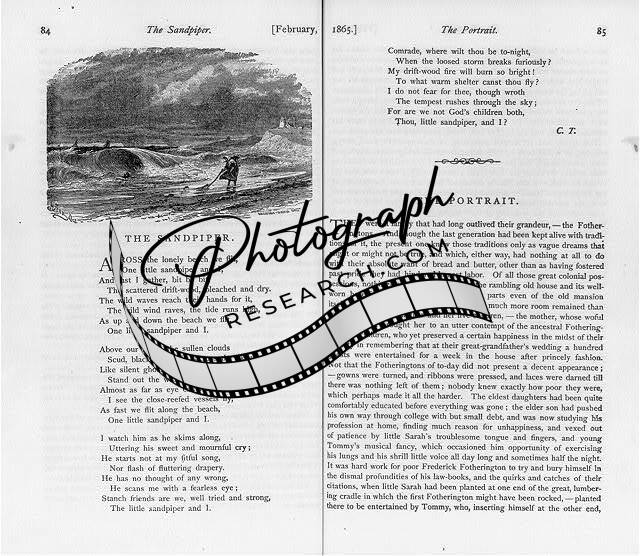 84
The Sandpiper.
[February,
THE SANDPIPER.
ACROSS the lonely beach we flit,
One little sandpiper and I,
And fast I gather, bit by bit,
The scattered drift-wood, bleached and dry.
The wild waves reach their hands for it,
The wild wind raves, the tide runs high,
As up and down the beach we flit,
One little sandpiper and I.
Above our the sullen clouds
Scud, black
Like silent gho
Stand out the w
Almost as far as eye
I see the close-reefed vessels fly,
As fast we flit along the beach,
One little sandpiper and I.
I watch him as he skims along,
Uttering his sweet and mournful cry;
He starts not at my fitful song,
Nor flash of fluttering drapery.
He has no thought of any wrong,
He scans me with a fearless eye;
Stanch friends are we, well tried and strong,
The little sandpiper and I.
1865.]
The Portrait.
85
Comrade, where wilt thou be to-night,
When the loosed storm breaks furiously?
My drift-wood fire will burn so bright!
To what warm shelter canst thou fly?
I do not fear for thee, though wroth
The tempest rushes through the sky;
For are we not God's children both,
Thou, little sandpiper, and I?
C. T.
PORTRAIT.
that had long outlived their grandeur,—the Fother-
though the last generation had been kept alive with tradi-
it, the present one knew those traditions only as vague dreams that
or might not be and which, either way, had nothing at all to do
their absolute want of bread and butter, other than as having fostered
labor. Of all those great colonial pos-
the rambling old house and its well-
worn parts even of the old mansion
much more room remained than
children,—the mother, whose woful
her to an utter contempt of the ancestral Fothering-
children, who yet preserved a certain happiness in the midst of their
in remembering that at their great-grandfather's wedding a hundred
were entertained for a week in the house after princely fashion.
Not that the Fotheringtons of to-day did not present a decent appearance;
—gowns were turned, and ribbons were pressed, and laces were darned till
there was nothing left of them; nobody knew exactly how poor they were,
which perhaps made it all the harder. The eldest daughters had been quite
comfortably educated before everything was gone; the elder son had pushed
his own way through college with but small debt, and was now studying his
profession at home, finding much reason for unhappiness, and vexed out
of patience by little Sarah's troublesome tongue and fingers, and young
Tommy's musical fancy, which occasioned him opportunity of exercising
his lungs and his shrill little voice all day long and sometimes half the night.
It was hard work for poor Frederick Fotherington to try and bury himself in
the dismal profundities of his law-books, and the quirks and catches of their
citations, when little Sarah had been planted at one end of the great, lumber-
ing cradle in which the first Fotherington might have been rocked,—planted
there to be entertained by Tommy, who, inserting himself at the other end,
Photograph
RESEARCH.COM